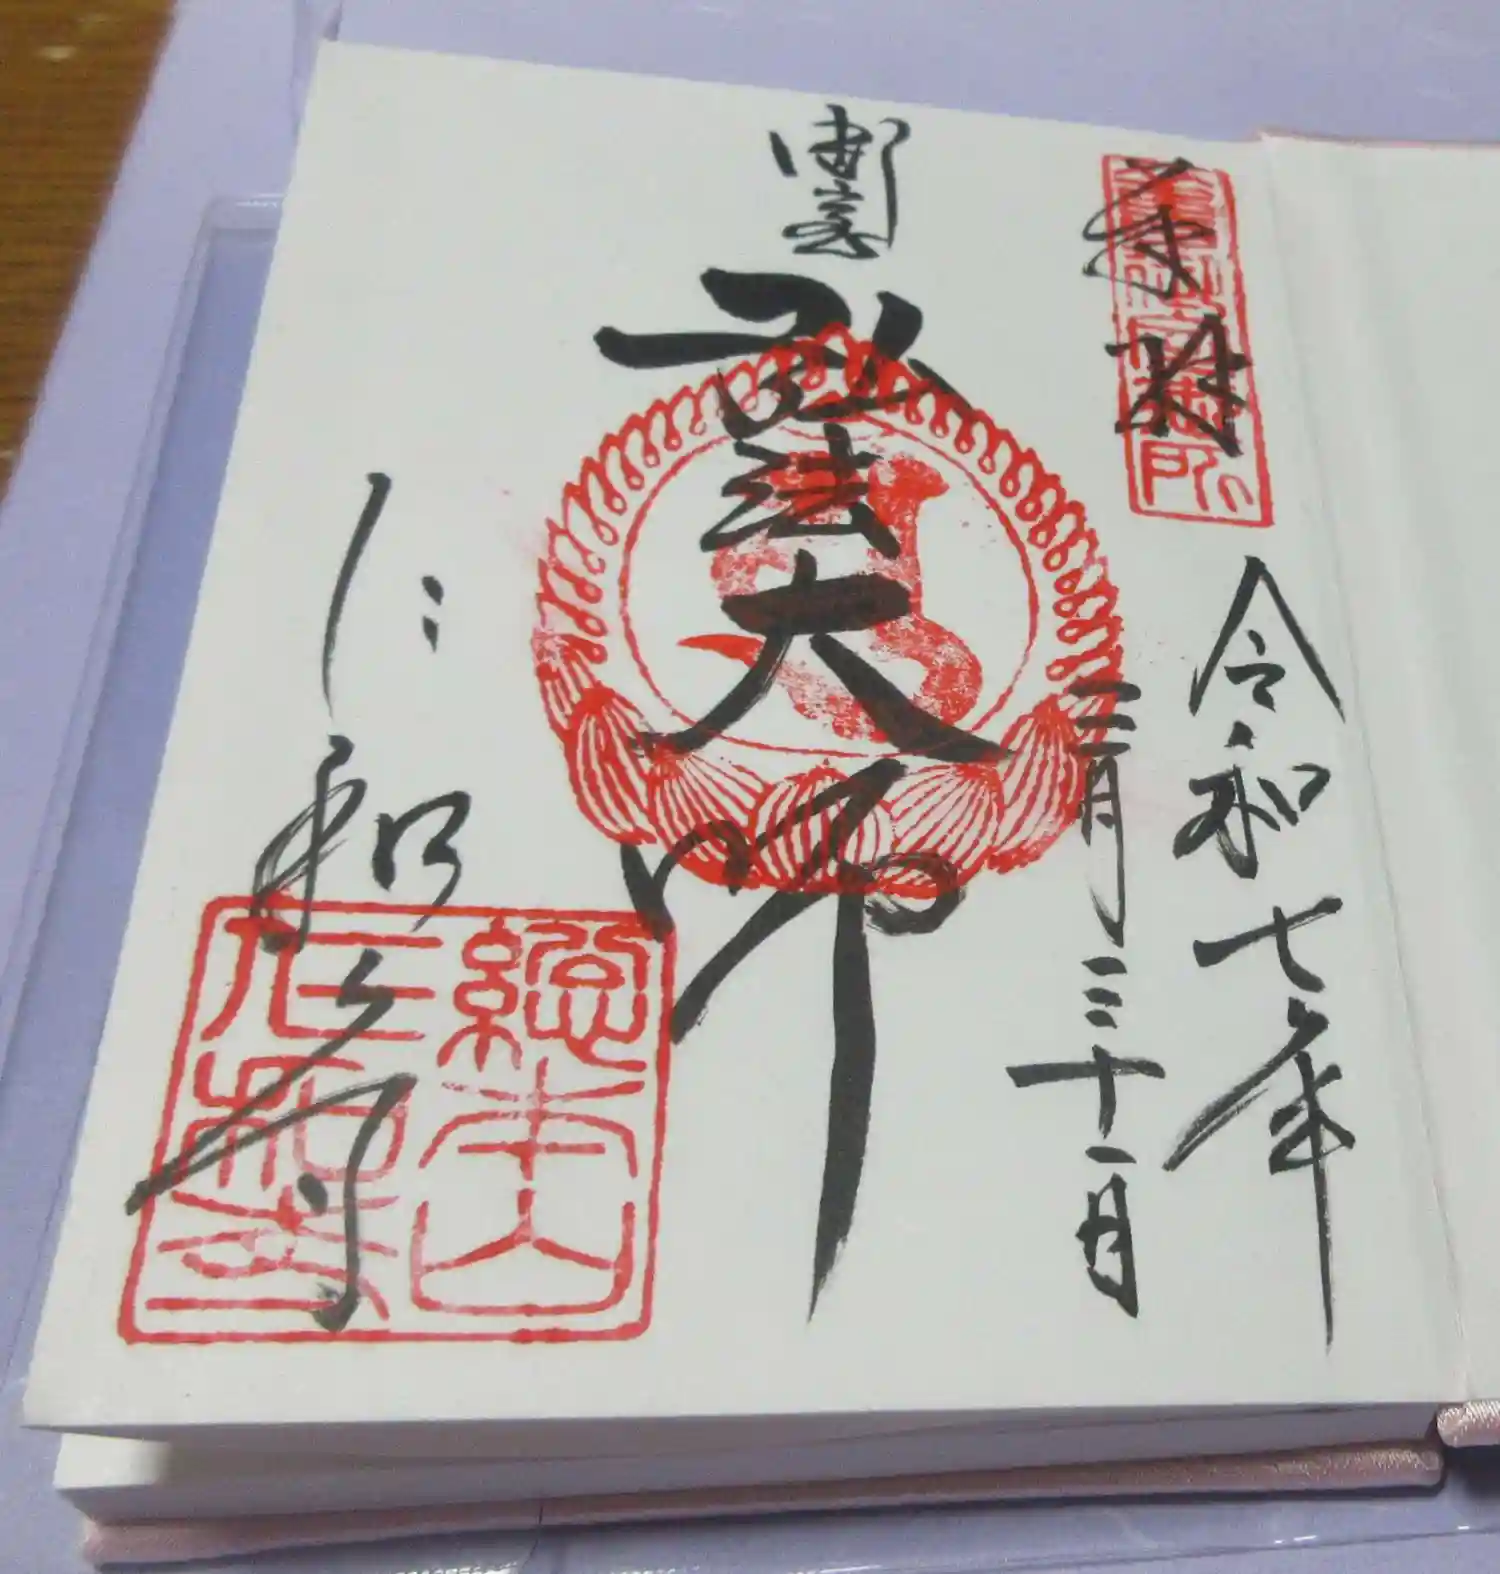 奉拝
令和七年
三月三十一日
弘法大師
仁和寺
総本山
仁和寺